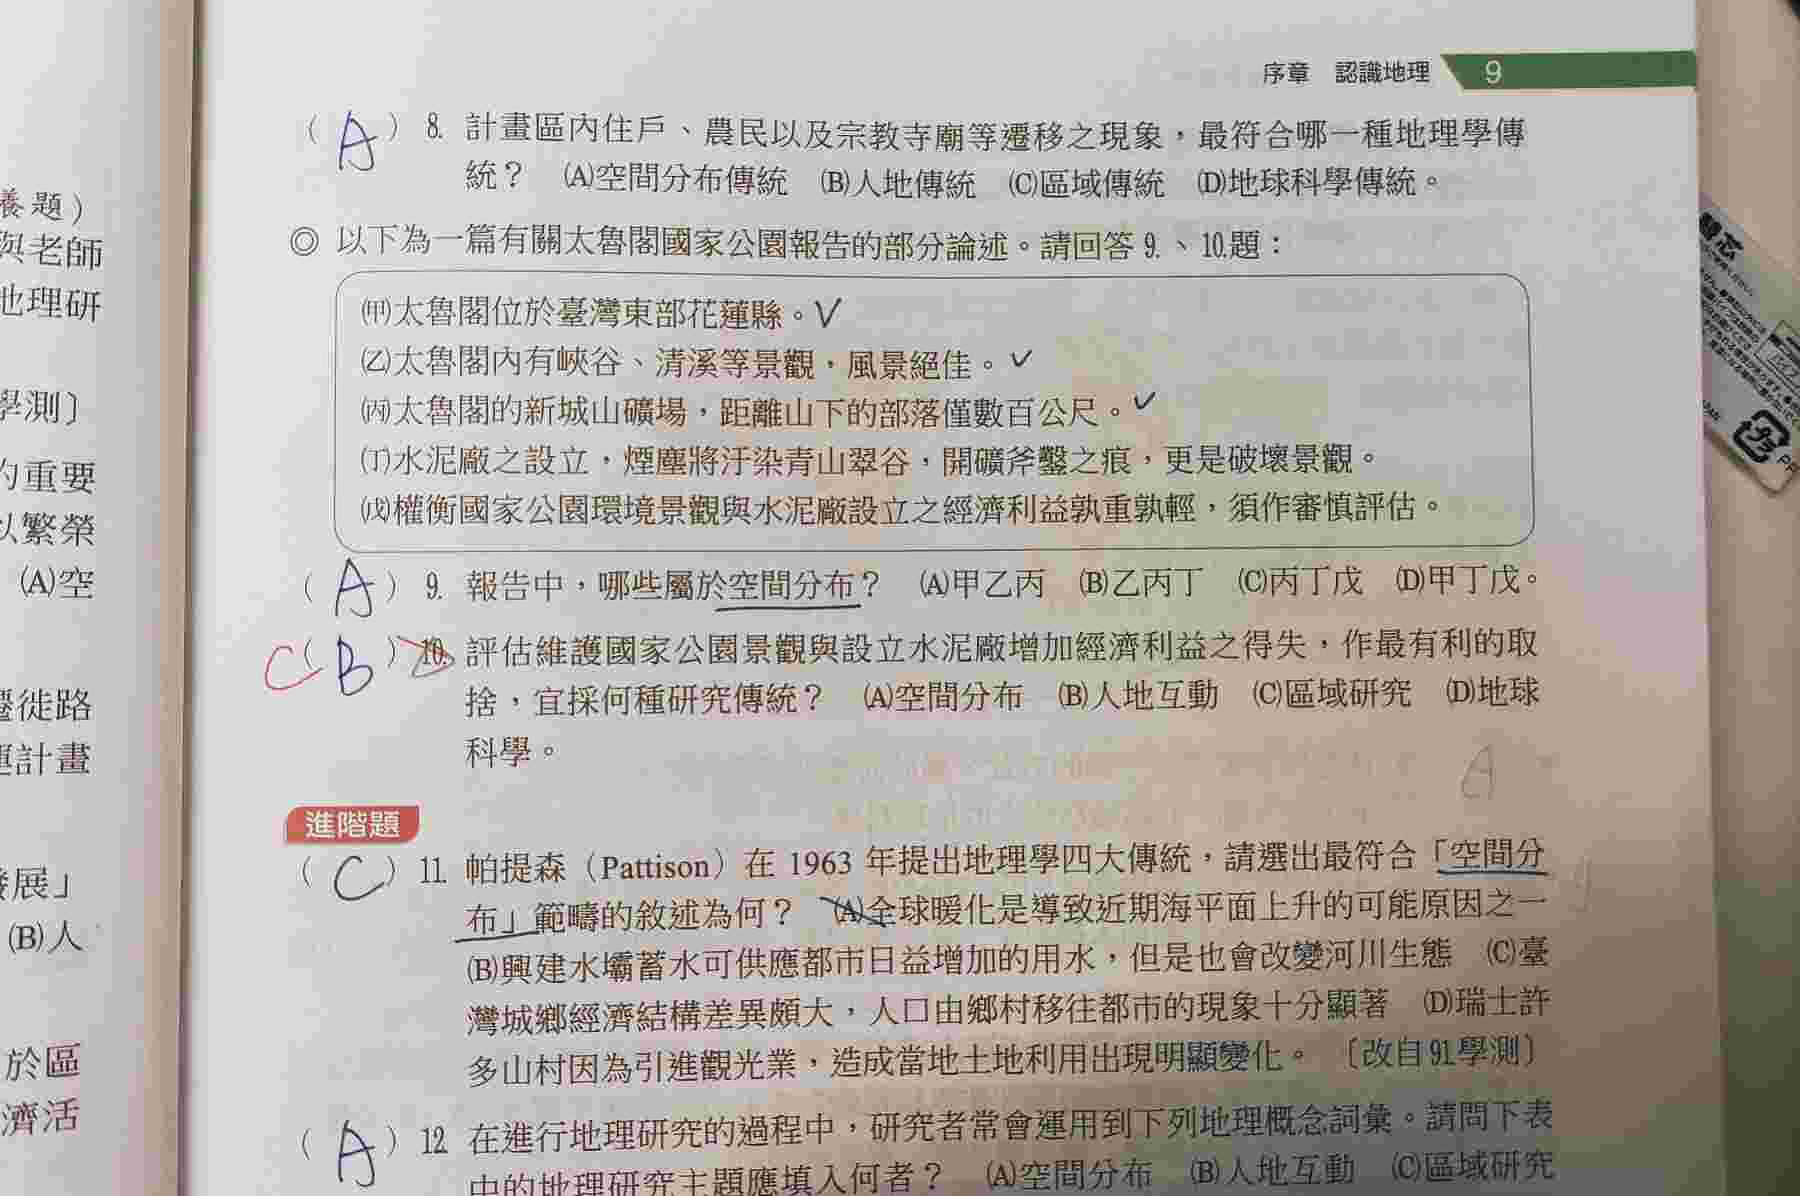 序章 認識地理 9
養題)
與老師
地理研
學測〕
的重要
以繁榮
(A)空
遷徙路
運計畫
發展」
(B)人
於區
濟活
( A ) 8. 計畫區內住戶、農民以及宗教寺廟等遷移之現象,最符合哪一種地理學傳
統? (A)空間分布傳統 (B)人地傳統 (C)區域傳統 (D)地球科學傳統。
◎ 以下為一篇有關太魯閣國家公園報告的部分論述。請回答 9.、10.題:
(甲)太魯閣位於臺灣東部花蓮縣。✓
(乙)太魯閣內有峽谷、清溪等景觀,風景絕佳。✓
(丙)太魯閣的新城山礦場,距離山下的部落僅數百公尺。✓
(丁)水泥廠之設立,煙塵將汙染青山翠谷,開礦斧鑿之痕,更是破壞景觀。
(戊)權衡國家公園環境景觀與水泥廠設立之經濟利益孰重孰輕,須作審慎評估。
( A ) 9. 報告中,哪些屬於空間分布? (A)甲乙丙 (B)乙丙丁 (C)丙丁戊 (D)甲丁戊。
C ( B ) 10. 評估維護國家公園景觀與設立水泥廠增加經濟利益之得失,作最有利的取
捨,宜採何種研究傳統? (A)空間分布 (B)人地互動 (C)區域研究 (D)地球
科學。
A
進階題
( C ) 11. 帕提森(Pattison)在 1963 年提出地理學四大傳統,請選出最符合「空間分
布」範疇的敘述為何? (A)全球暖化是導致近期海平面上升的可能原因之一
(B)興建水壩蓄水可供應都市日益增加的用水,但是也會改變河川生態 (C)臺
灣城鄉經濟結構差異頗大,人口由鄉村移往都市的現象十分顯著 (D)瑞士許
多山村因為引進觀光業,造成當地土地利用出現明顯變化。〔改自91.學測〕
( A ) 12. 在進行地理研究的過程中,研究者常會運用到下列地理概念詞彙。請問下表
中的地理研究主題應填入何者? (A)空間分布 (B)人地互動 (C)區域研究
替芯